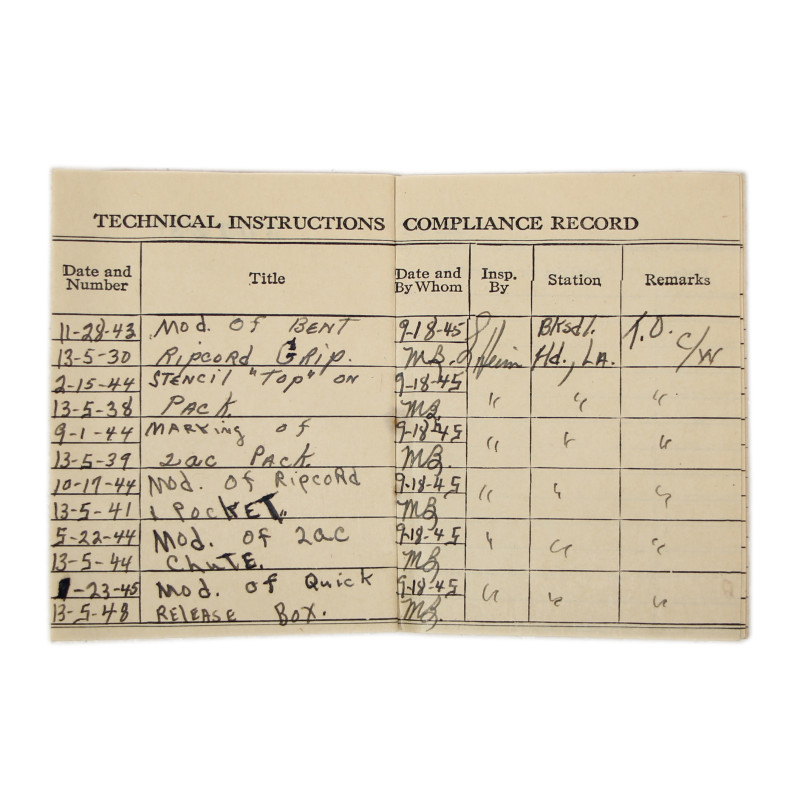 TECHNICAL INSTRUCTIONS COMPLIANCE RECORD
Date and Number Title Date and By Whom Insp. By Station Remarks
11-28-43 Mod. of BENT 9-18-45 Bksdl. T.O. C/W
13-5-30 RipcoRd GRip. MB. Heim Fld., LA.
2-15-44 STENCIL "Top" on 9-18-45
13-5-38 PACK MB. " " "
9-1-44 MARKing of 9-18-45
13-5-39 2ac PACK. MB. " " "
10-17-44 Mod. of RipcoRd 9-18-45
13-5-41 & PocKET. MB. " " "
5-22-44 Mod. of 2ac 9-18-45
13-5-44 ChuTE. MB. " " "
1-23-45 Mod. of Quick 9-18-45
13-5-48 RELEASE Box. MB. " " "